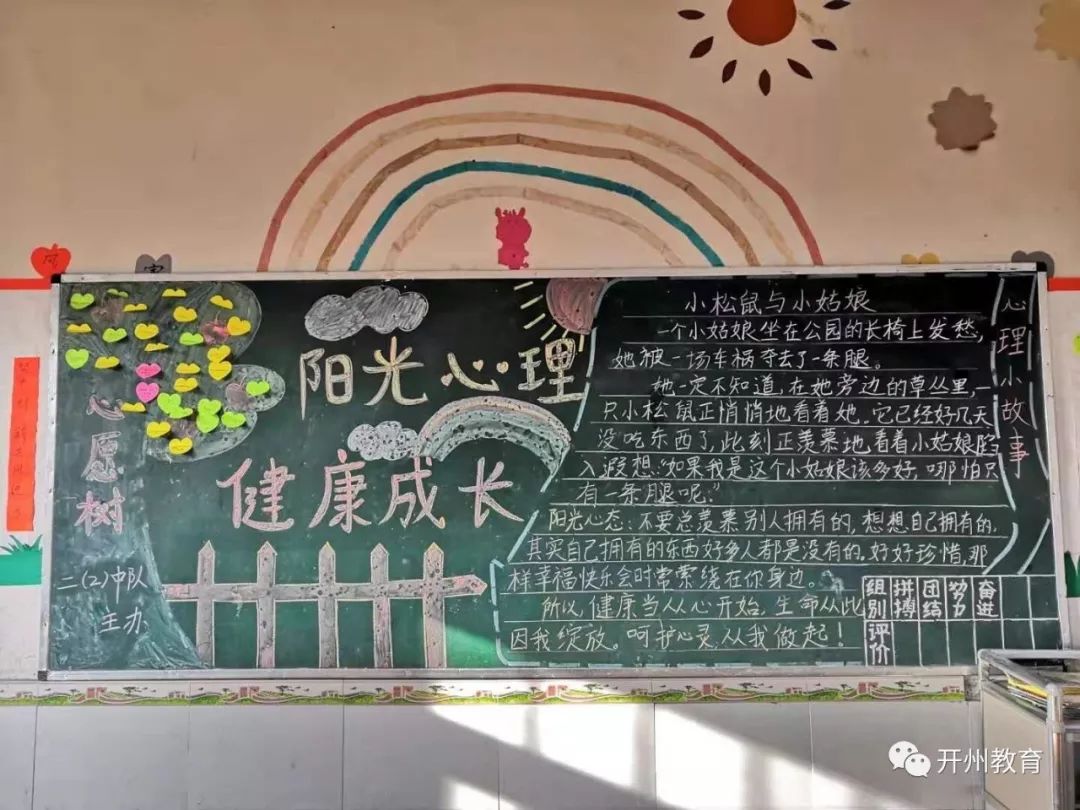 心愿树
二(2)中队
主办
阳光心理
健康成长
小松鼠与小姑娘
一个小姑娘坐在公园的长椅上发愁,
她被一场车祸夺去了一条腿。
她一定不知道,在她旁边的草丛里,一
只小松鼠正悄悄地看着她。它已经好几天
没吃东西了,此刻正羡慕地看着小姑娘陷
入遐想“如果我是这个小姑娘该多好,哪怕只
有一条腿呢。”
阳光心态:不要总羡慕别人拥有的,想想自己拥有的,
其实自己拥有的东西好多人都是没有的。好好珍惜,那
样幸福快乐会时常萦绕在你身边。
所以,健康当从心开始,生命从此
因我绽放。呵护心灵,从我做起!
心理小故事
组别 拼搏 团结 努力 奋进
评价
开州教育